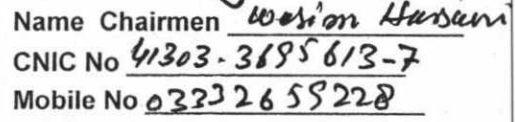 Name Chairmen Wasim Hussain
CNIC No 41303-3695613-7
Mobile No 03332659228